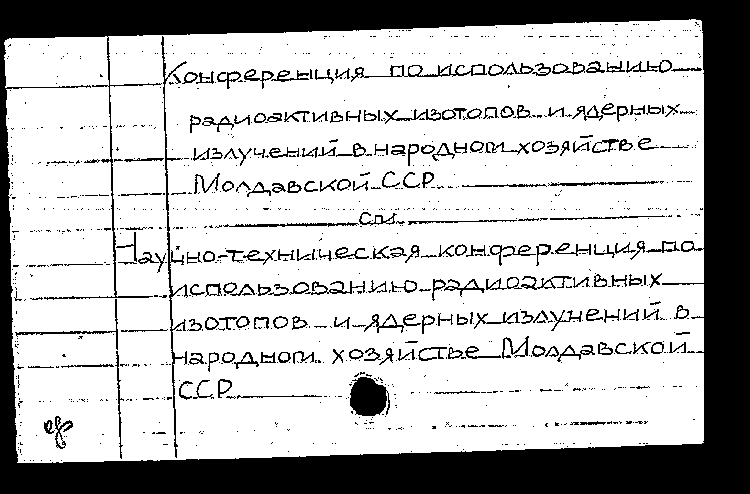 Конференция по использованию
радиоактивных изотопов и ядерных
излучений в народном хозяйстве
Молдавской ССР
см.
Научно-техническая конференция по
использованию радиоактивных
изотопов и ядерных излучений в
народном хозяйстве Молдавской
ССР